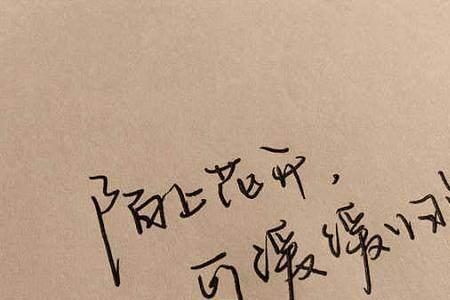 陌上花开，
可缓缓归